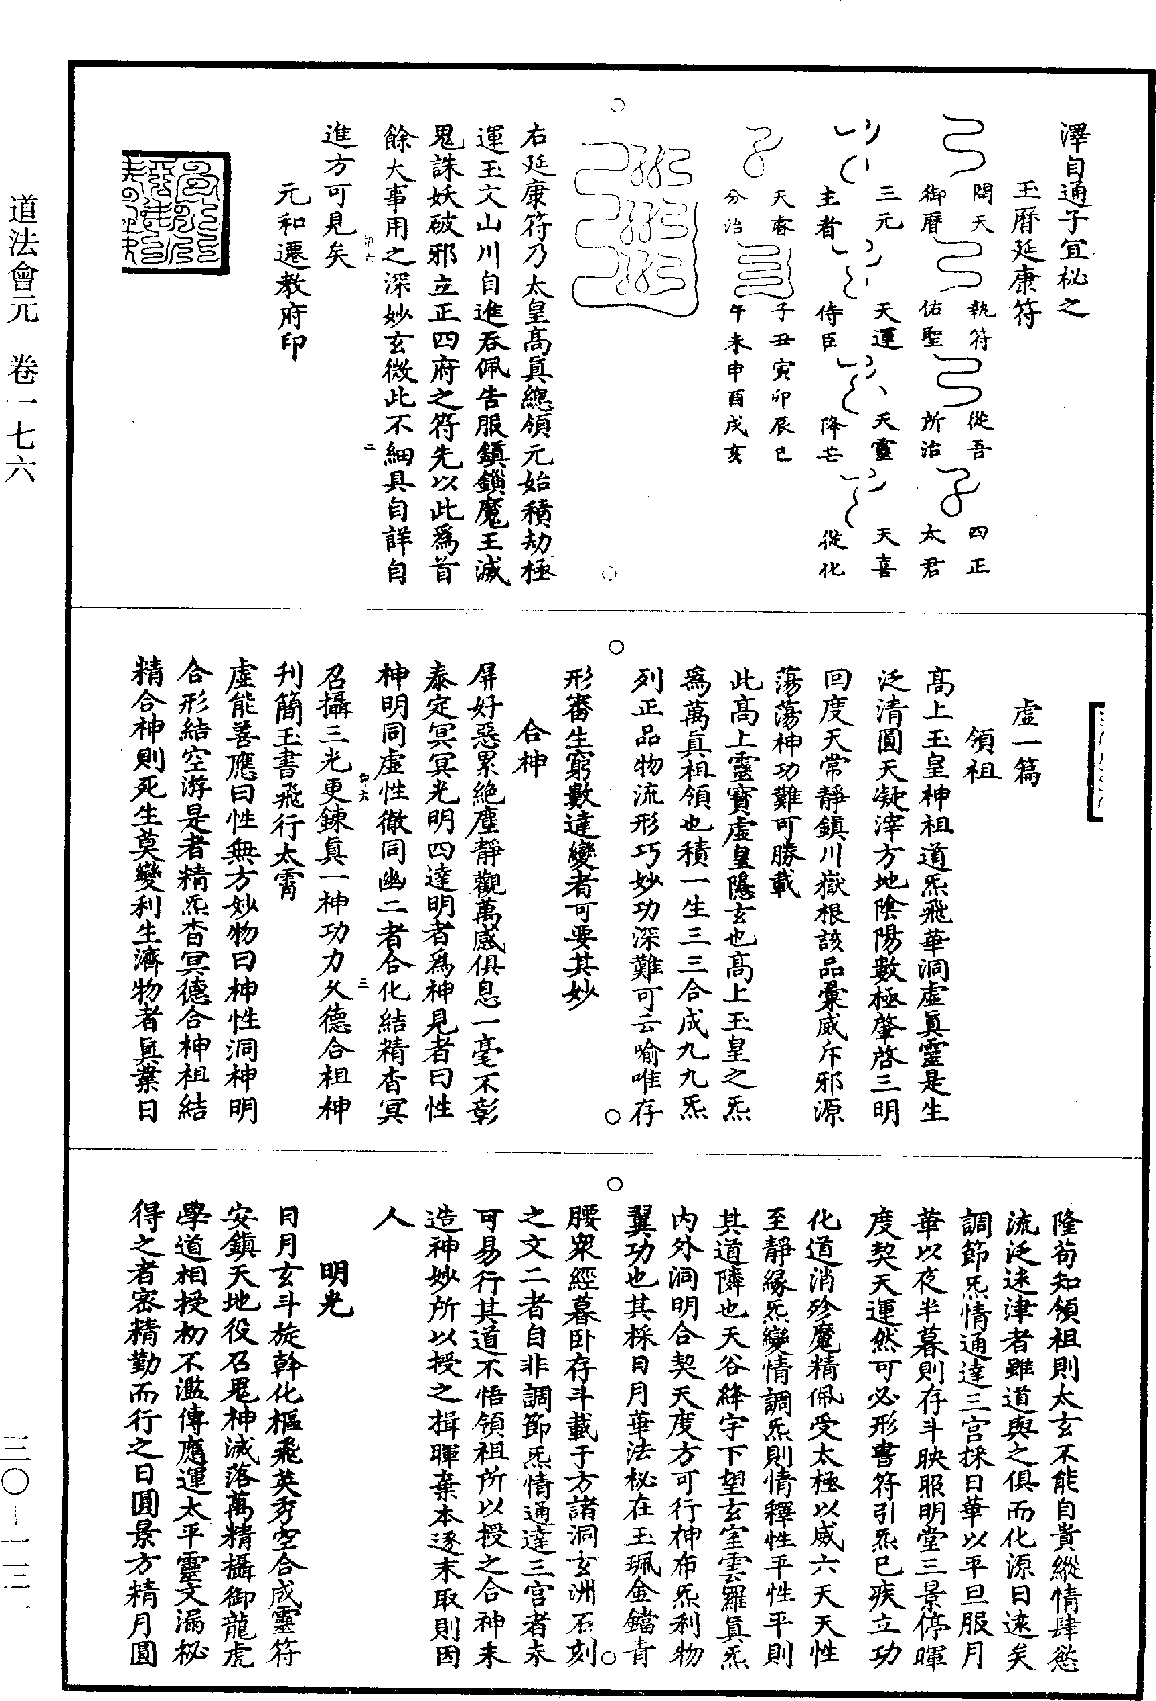 道法會元　卷一七六
澤自通子宜秘之
玉曆延康符
開天　執符　從吾　四正
御曆　佑聖　所治　太君
三元　天運　天靈　天喜
主者　侍臣　降芒　從化
天春　子丑寅卯辰巳
分治　午未申酉戌亥
右延康符乃太皇高眞總領元始積劫極
運玉文山川自進吞佩告服鎮鎖魔王滅
鬼誅妖破邪立正四府之符先以此爲首
餘大事用之深妙玄微此不細具自詳自
進方可見矣
元和遷教府印
虛一篇
領祖
高上玉皇神祖道炁飛華洞虛眞靈是生
泛清圓天凝滓方地陰陽數極肇啓三明
回度天常靜鎮川嶽根該品彙威斥邪源
蕩蕩神功難可勝載
此高上靈寶虛皇隱玄也高上玉皇之炁
爲萬眞祖領也積一生三三合成九九炁
列正品物流形巧妙功深難可云喻唯存
形審生窮數達變者可要其妙
合神
屏好惡累絶塵靜觀萬感俱息一毫不彰
泰定冥冥光明四達明者爲神見者曰性
神明同虛性徹同幽二者合化結精杳冥
召攝三光更鍊眞一神功力久德合祖神
刊簡玉書飛行太霄
虛能善應曰性無方妙物曰神性洞神明
合形結空游是者精炁杳冥德合神祖結
精合神則死生莫變利生濟物者眞業日
隆苟知領祖則太玄不能自貴縱情肆慾
流泛迷津者雖道與之俱而化源日遠矣
調節炁情通達三宮採日華以平旦服月
華以夜半暮則存斗映服明堂三景停暉
度契天運然可必形書符引炁已疾立功
化道消殄魔精佩受太極以威六天天性
至靜緣炁變情調炁則情釋性平性平則
其道隣也天谷絳宇下望玄室雲羅眞炁
內外洞明合契天度方可行神布炁利物
翼功也其採日月華法秘在玉珮金鐺青
腰眾經暮卧存斗載于方諸洞玄洲石刻
之文二者自非調節炁情通達三宮者未
可易行其道不悟領祖所以授之合神未
造神妙所以授之揖暉棄本逐末取則因
人
明光
日月玄斗旋斡化樞飛英秀空合成靈符
安鎮天地役召鬼神滅落萬精攝御龍虎
學道相授初不濫傳應運太平靈文漏秘
得之者密精勤而行之日圓景方精月圓
三〇—一一三